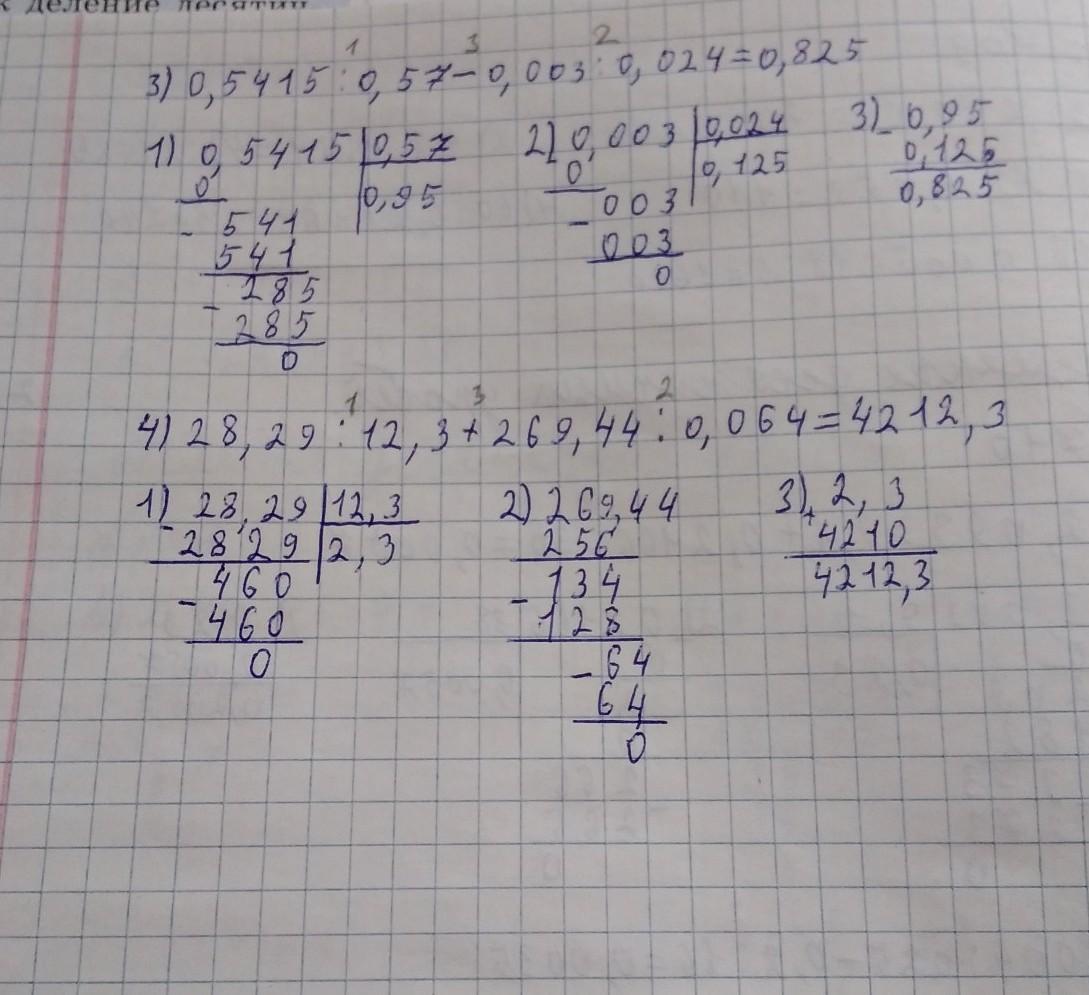 к деление десятич
1 3 2
3) 0,5415 : 0,57 - 0,003 : 0,024 = 0,825
1) 0,5415 | 0,57
0 | 0,95
- 541
541
- 285
285
0
2) 0,003 | 0,024
0 | 0,125
- 003
003
0
3) - 0,95
0,125
0,825
1 3 2
4) 28,29 : 12,3 + 269,44 : 0,064 = 4212,3
1) - 28,29 | 12,3
2829 | 2,3
- 460
460
0
2) 269,44
256
- 134
128
- 64
64
0
3) + 2,3
4210
4212,3